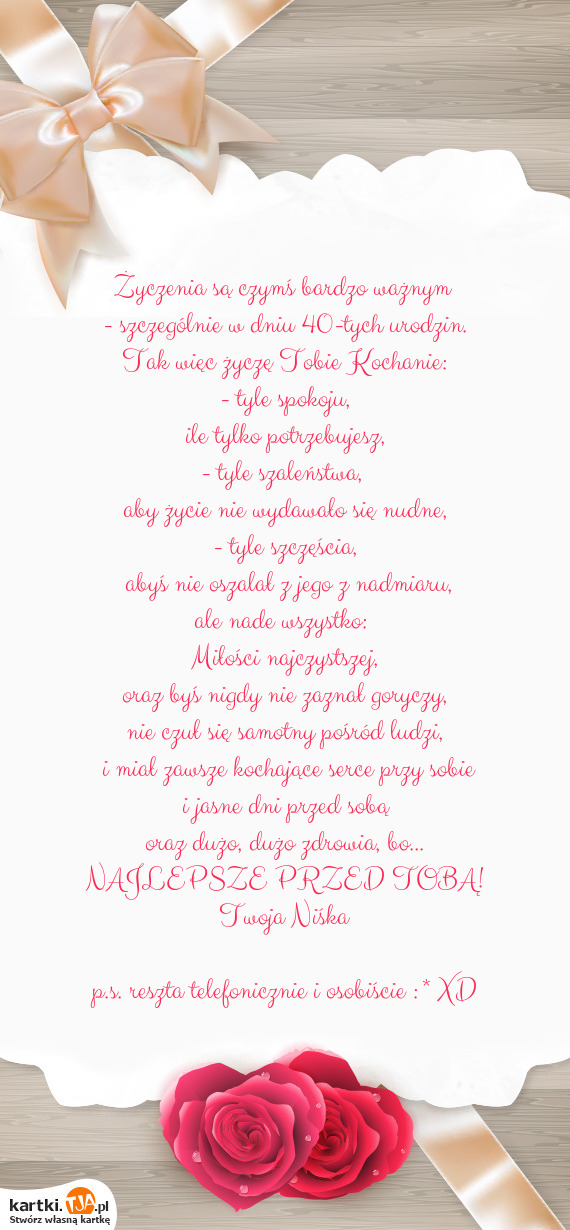 Życzenia są czymś bardzo ważnym
- szczególnie w dniu 40-tych urodzin.
Tak więc życzę Tobie Kochanie:
- tyle spokoju,
ile tylko potrzebujesz,
- tyle szaleństwa,
aby życie nie wydawało się nudne,
- tyle szczęścia,
abyś nie oszalał z jego z nadmiaru,
ale nade wszystko:
Miłości najczystszej,
oraz byś nigdy nie zaznał goryczy,
nie czuł się samotny pośród ludzi,
i miał zawsze kochające serce przy sobie
i jasne dni przed sobą
oraz dużo, dużo zdrowia, bo...
NAJLEPSZE PRZED TOBĄ!
Twoja Niśka
p.s. reszta telefonicznie i osobiście :* XD
kartki.TJA.pl
Stwórz własną kartkę